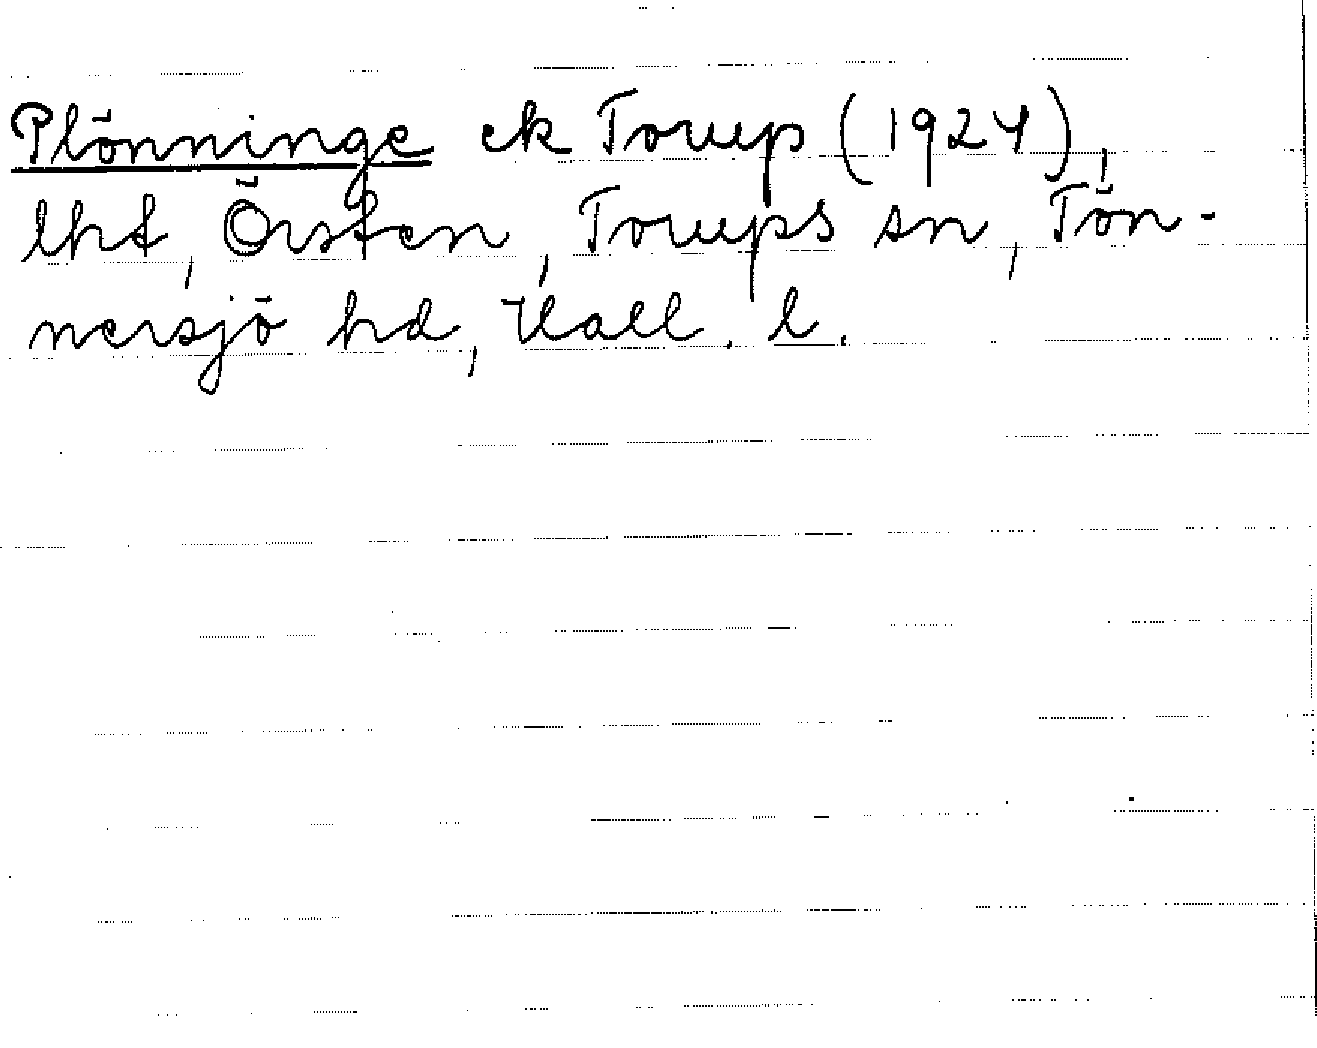 Plönninge ek Torup (1924),
lht, Örsten, Torups sn, Tön-
nersjö hd, Hall. l.